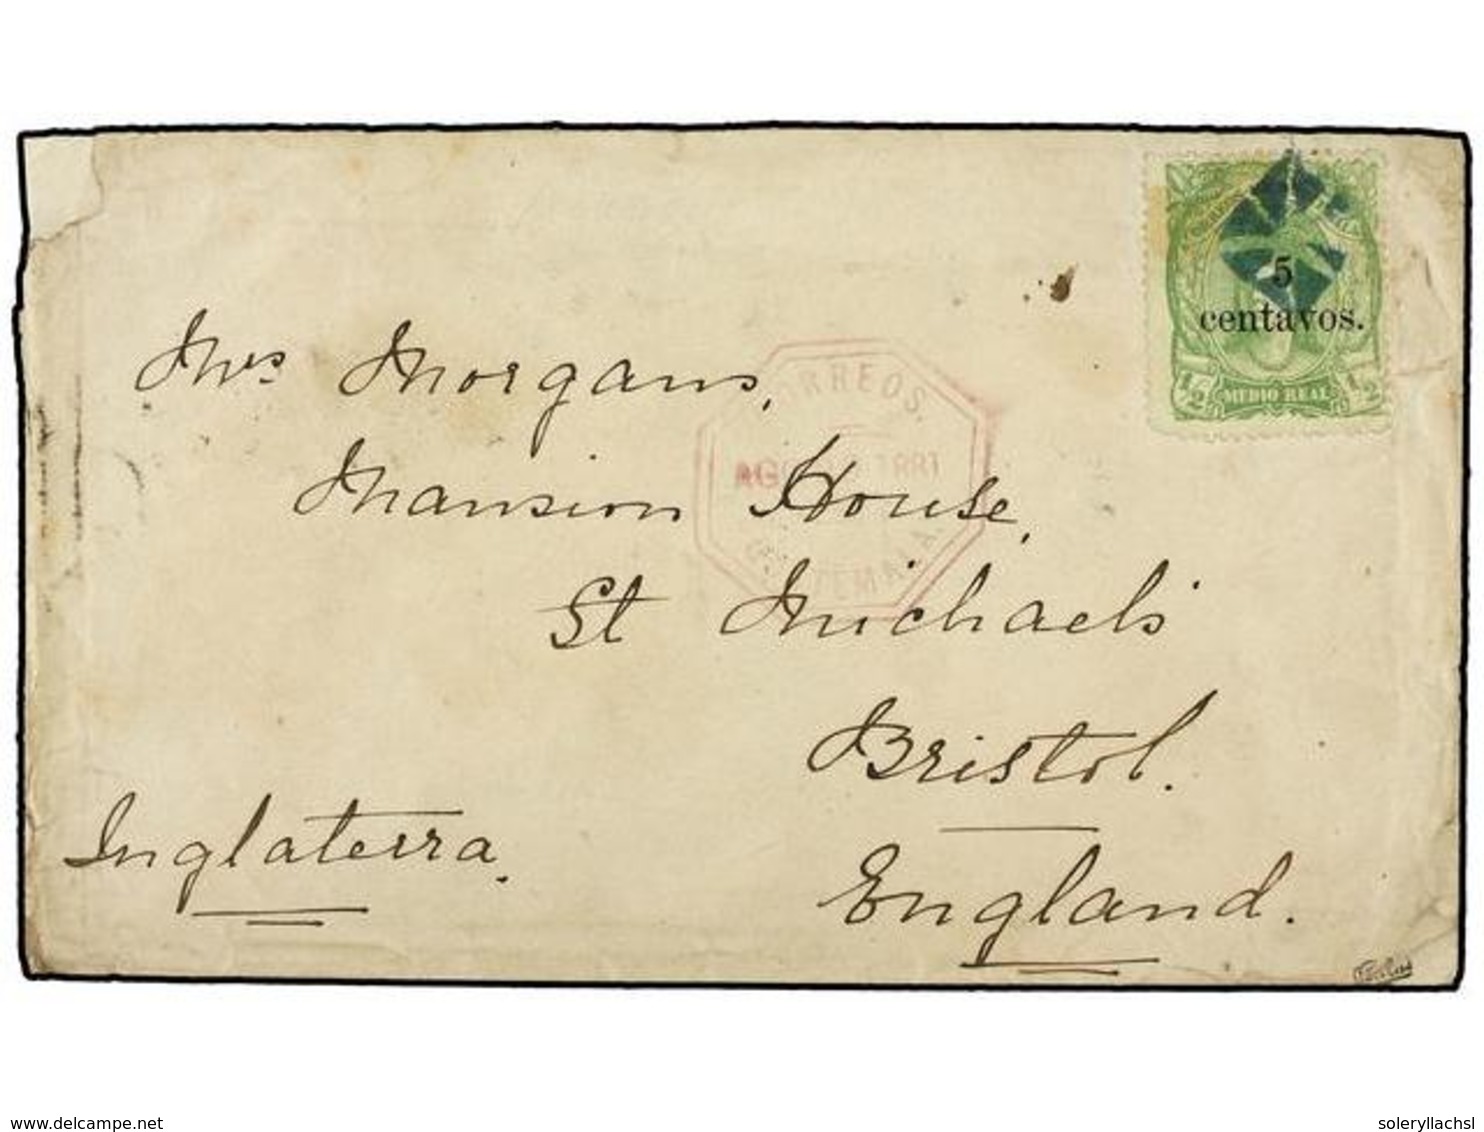 Mrs Morgans,
Mansion House,
St Michaels
Bristol.
England.
Inglaterra.
CORREOS.
AGO 1881
GUATEMALA
5
centavos.
1/2 MEDIO REAL 1/2
www.delcampe.net
soleryllachsl